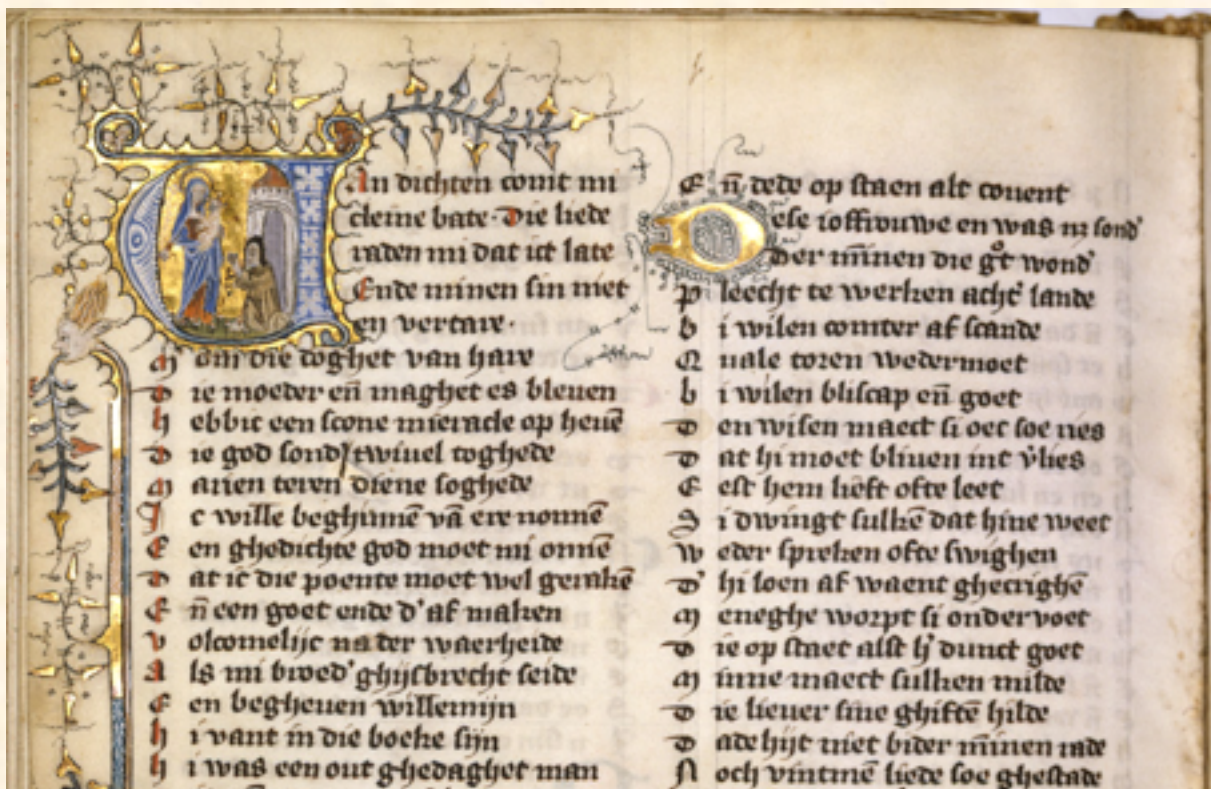 Van dichten comt mi
cleine bate. Die liede
raden mi dat ict late
Ende minen sin niet
en vertare.
Maer om die doghet van hare
Die moeder eñ maghet es bleuen
Hebbic een scone mieracle op heuē
Die god sond' twiuel toghede
Marien teren diene soghede
Ic wille beghinnē vā ere nonnē
Een ghedichte god moet mi onnē
Dat ic die poente moet wel gerakē
Eñ een goet ende d'af maken
Volcomelijc na der waerheide
Als mi broed' ghijsbrecht seide
Een begheuen willemijn
Hi vant in die boeke sijn
Hi was een out ghedaghet man
Eñ dede op staen alt couent
Dese ioffrouwe en was nz sond'
Der minnen die gͦt wond'
Pleecht te werken acht' lande
Bi wilen comter af scande
Quale toren wedermoet
Bi wilen bliscap eñ goet
Den wisen maect si oec soe ries
Dat hi moet bliuen int v'lies
Eest hem lieft ofte leet
Si dwingt sulkē dat hine weet
Weder spreken ofte swighen
D' hi loen af waent ghecrighē
Meneghe worpt si onder voet
Die op staet alst h' dunct goet
Minne maect sulken milde
Die lieuer sine ghiftē hilde
Dade hijt niet bider minnen rade
Noch vintmē liede soe ghestade